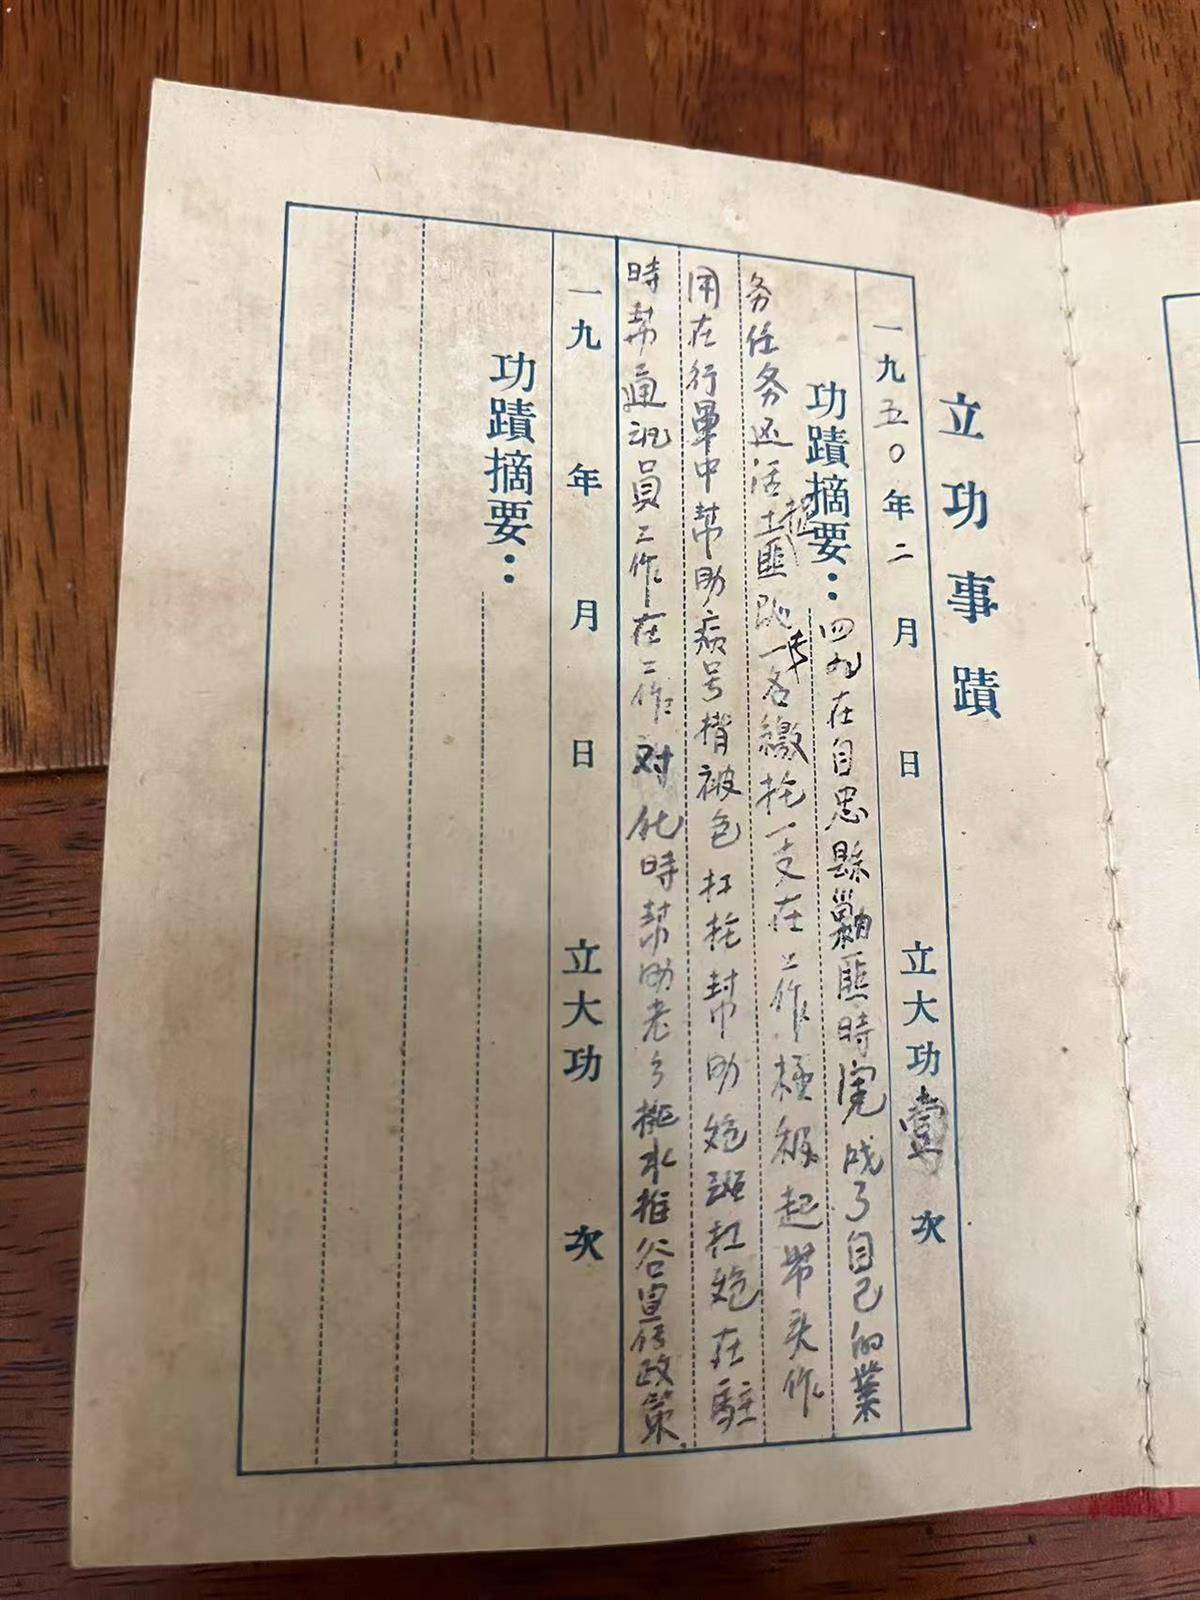 立功事蹟
一九五〇年二月 日 立大功壹次
功蹟摘要：四九在自忠縣剿匪時完成了自己的業
务任务还活捉土匪 一名繳枪一支在工作極积起带头作
用在行軍中幇助病号揹被包扛枪幇助炮班扛炮在駐
時幇通訊員工作在工作对 時幇助老乡挑水推谷宣传政策
一九 年 月 日 立大功 次
功蹟摘要：